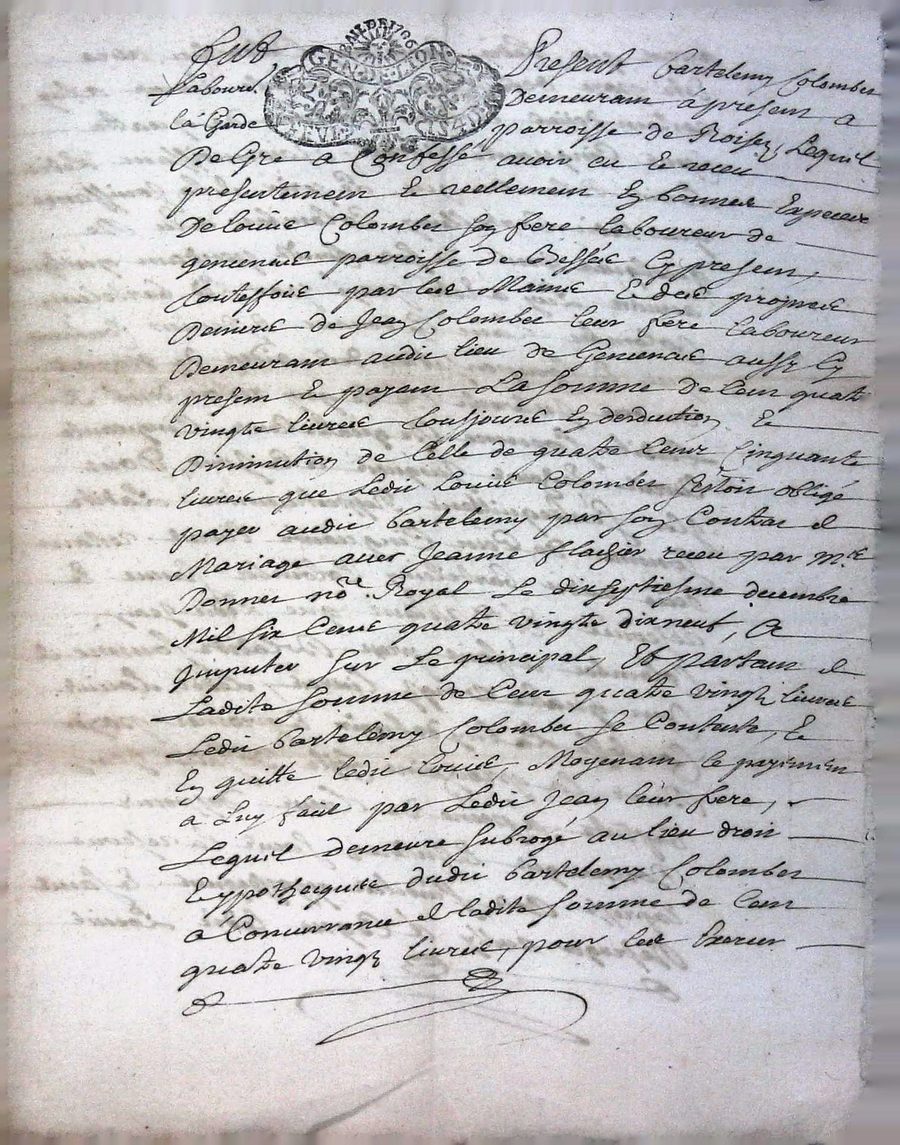 BAIL DE 1706
GEN. DE LION
Fut Present bartelemy Colombet
Laboureur Demeurant á present a
lá Garde parroisse de Roisey, Lequel
De Gre a Confessé avoir eu Et receu
presentement Et reellement En bonnes Especes
De Loüis Colombet son frere laboureur de
parroisse de Bessée Cy present,
toutesfois par les Mains Et des propres
Deniers de Jean Colombet leur frere laboureur
Demeurant audit lieu de aussy Cy
present Et payant La Somme de Cent quatre
vingts livres tousjours En desduction Et
Diminution de Celle de quatre Cent Cinquante
livres que Ledit Loüis Colombet S'estoit obligé
payer audit bartelemy par son Contrat de
Mariage avec Jeanne flachier receu par Mre
Donnet nore Royal Le dixseptiesme decembre
Mil Six Cens quatre vingts dixneuf, A
Imputer Sur Le principal, Et partant de
Ladite Somme de Cent quatre vingts livres
Ledit bartelemy Colombet Se Contente, Et
En quitte ledit Loüis, Moyenant le payement
a Luy faict par Ledit Jean leur frere,
Lequel Demeure Subrogé au lieu droit
Et ypotheques dudit bartelemy Colombet
á Concurrance de ladite Somme de Cent
quatre vingts livres, pour les Exercer